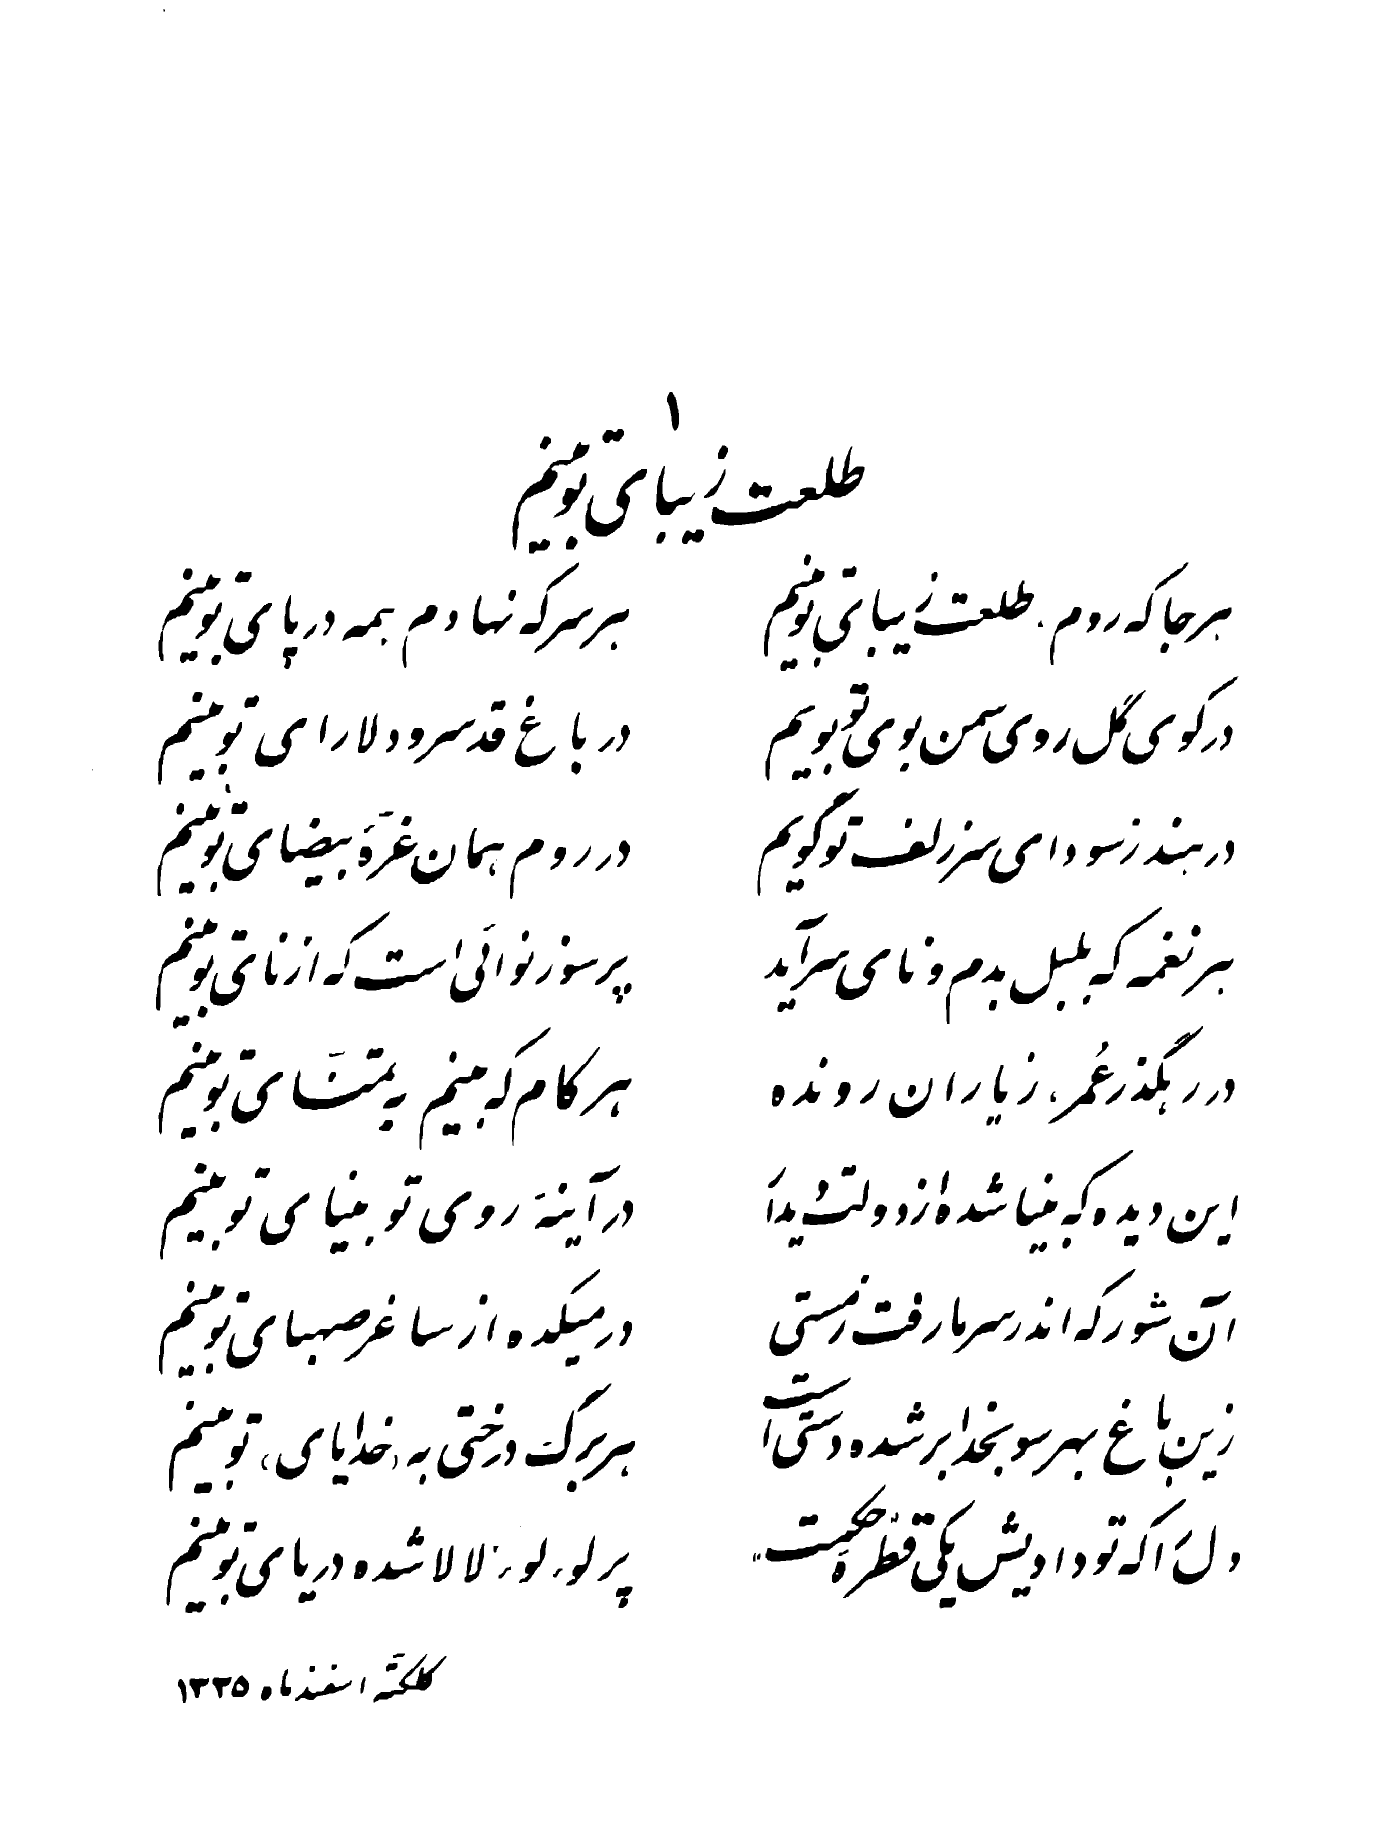 ۱
طلعت زیبای تو بینم
هر جا که روم، طلعت زیبای تو بینم هر سر که نهادم همه در پای تو بینم
در کوی گل روی سمن بوی تو بویم در باغ قد سرو دلارای تو بینم
در هند ز سودای سر زلف تو گویم در روم همان غرّهٔ بیضای تو بینم
هر نغمه که بلبل بدم و نای سرآید پرسوز نوائی است که از نای تو بینم
در رهگذر عُمر، ز یاران رونده هر کام که بینم به تمنّای تو بینم
این دیده که بینا شده از دولت دیدار در آینهٔ روی تو بینای تو بینم
آن شور که اندر سر ما رفت ز مستی در میکده از ساغر صهبای تو بینم
زین باغ بهر سو بخدا بر شده دستی است هر برگ درختی به (خدایای) تو بینم
دل را که تو دادیش یکی قطره «حکمت» پر لؤلؤ لالا شده دریای تو بینم
کلکتّه اسفندماه ۱۳۳۵